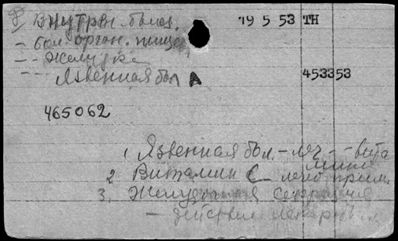 8 Внутрен. болез. 19 5 53 TH
- бол. орган. пищев
-- Желудка
-- - Язвенная бол А 453353
465062
1 Язвенная бол. - леч. - вита
мины
2 Витамин С - леч. прим.
3. Желудочная секреция
- действие лекарствен.